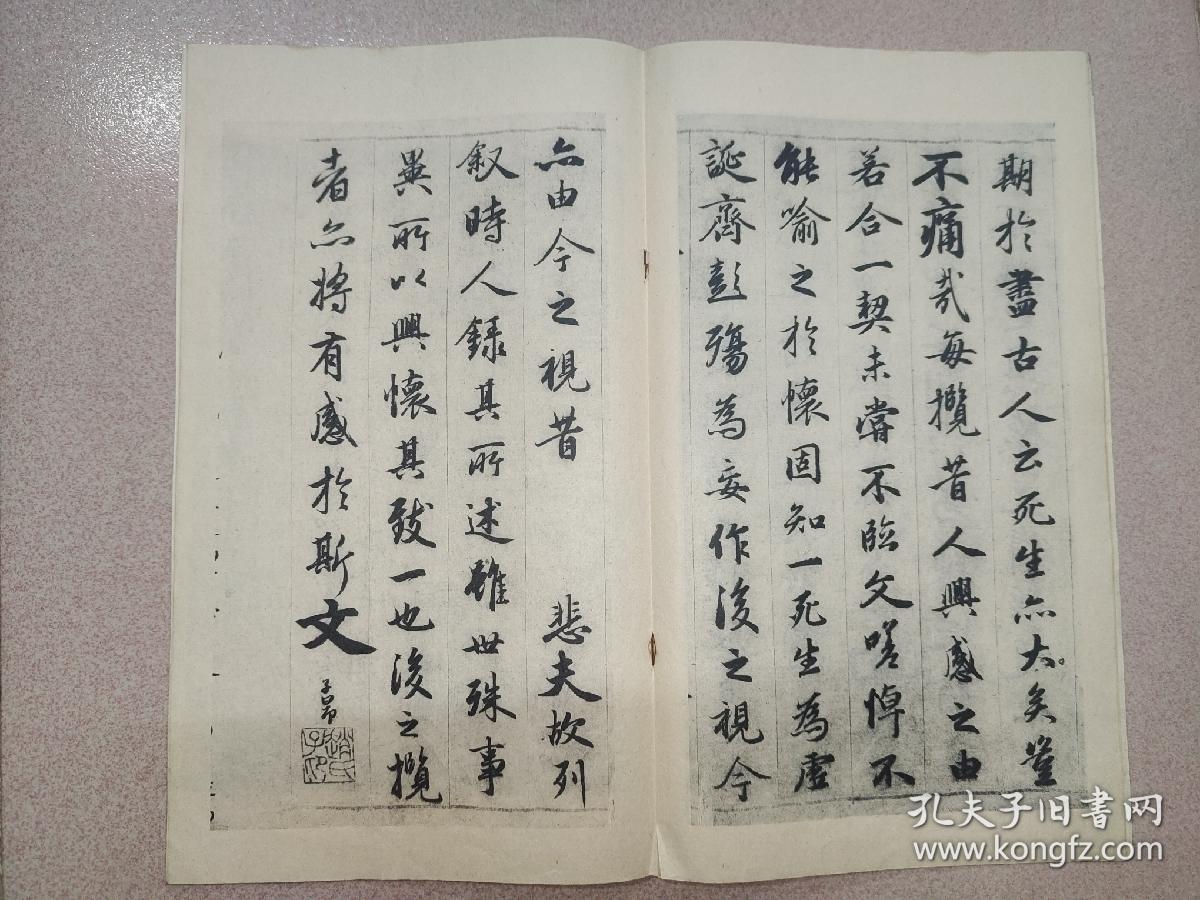 期於盡古人云死生亦大矣豈
不痛哉每攬昔人興感之由
若合一契未嘗不臨文嗟悼不
能喻之於懷固知一死生為虛
誕齊彭殤為妄作後之視今
亦由今之視昔 悲夫故列
叙時人錄其所述雖世殊事
異所以興懷其致一也後之攬
者亦將有感於斯文
子昂
趙氏子印
孔夫子旧书网
www.kongfz.com